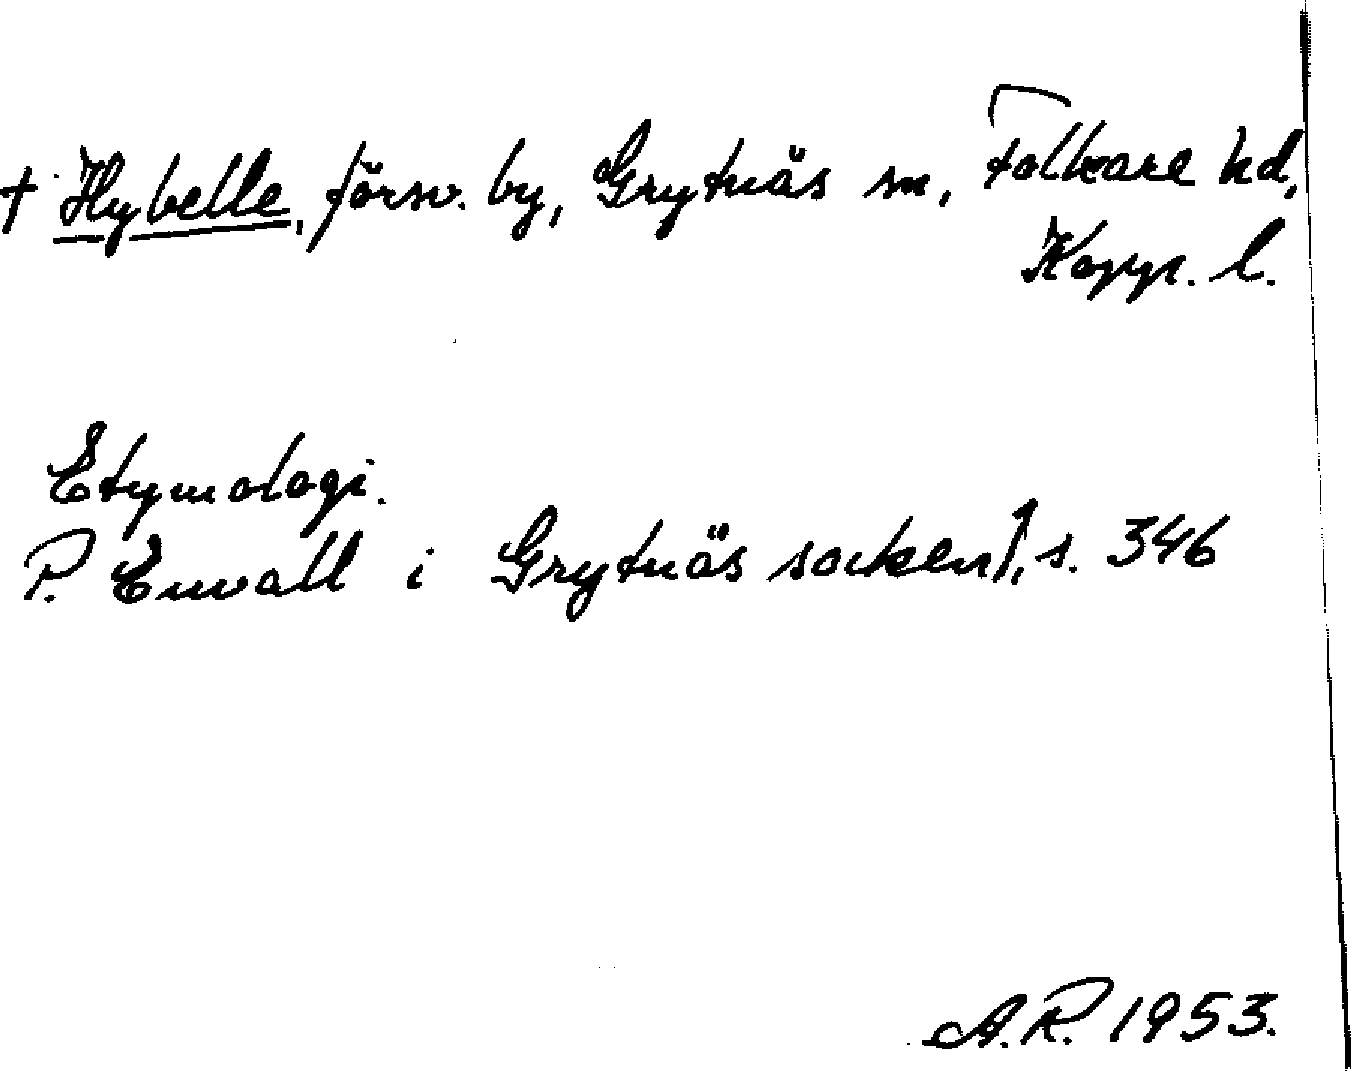 † Hybelle, försv. by, Grytnäs sn, Folkare hd,
Kopp. l.
Etymologi.
P. Envall i Grytnäs socken 1, s. 346
A.R. 1953.